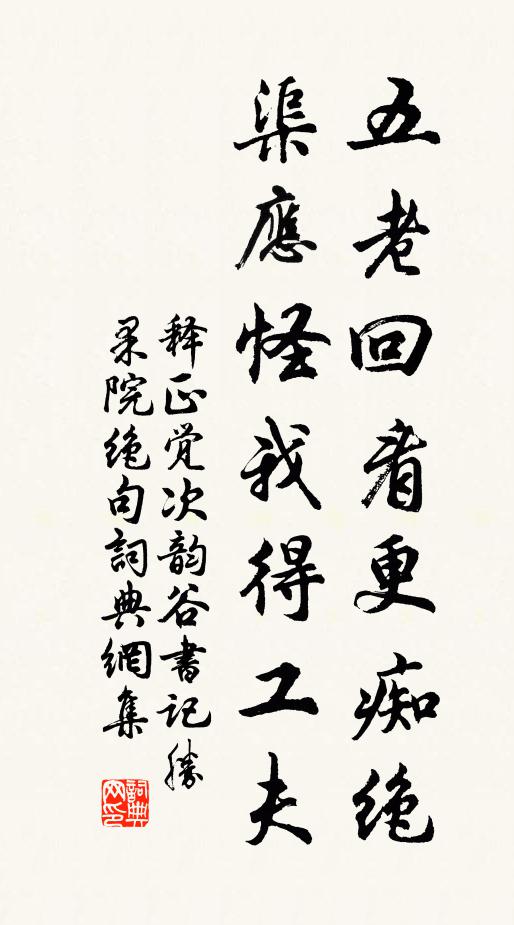 五老回看更痴绝
渠應怪我得工夫
释正觉次韵谷書记勝
果院绝句詞典網集
詞典网印